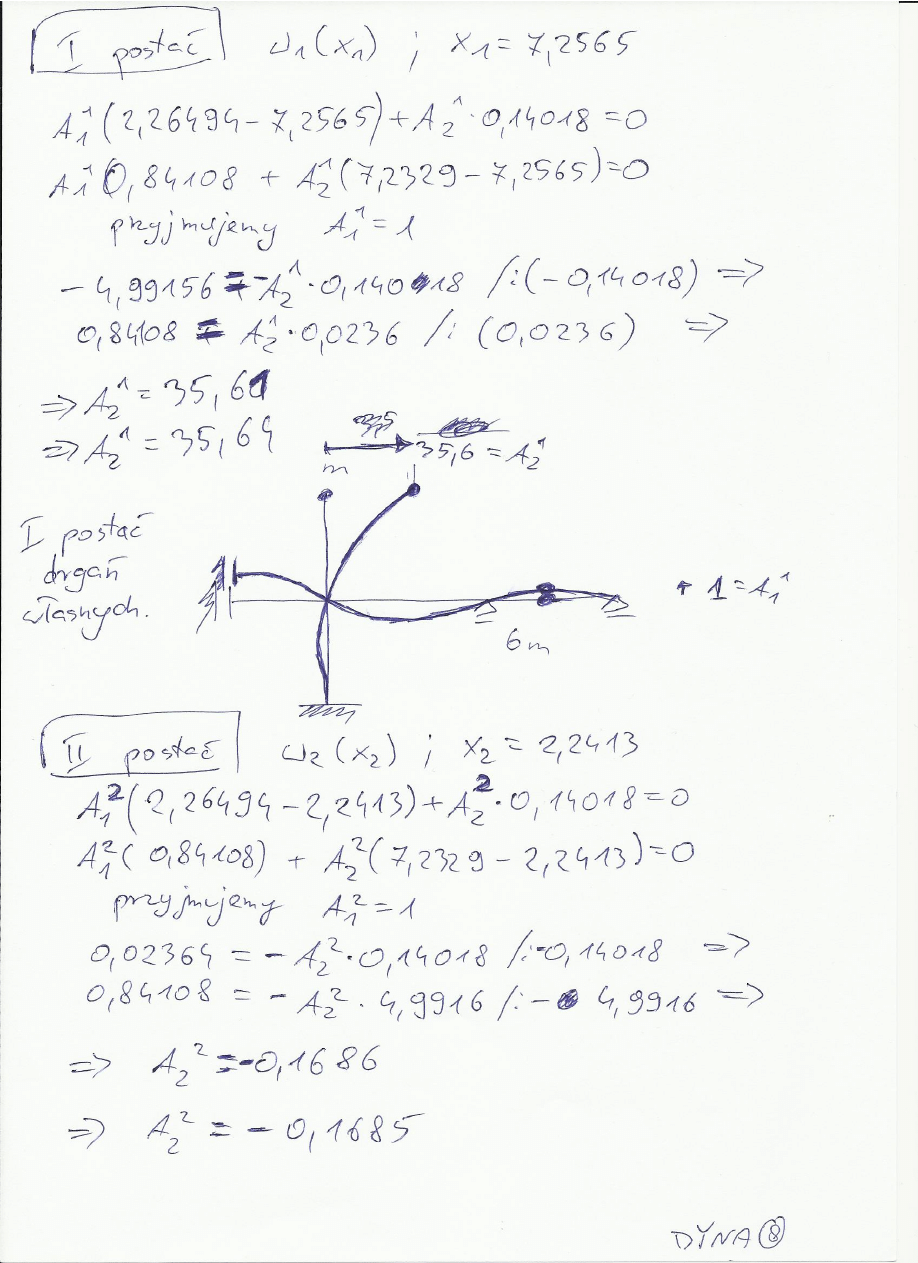 I postać ω₁(x₁) ; x₁ = 7,2565
A₁¹(2,26494 - 7,2565) + A₂¹·0,14018 = 0
A₁¹ 0,84108 + A₂¹(7,2329 - 7,2565) = 0
przyjmujemy A₁¹ = 1
- 4,99156 = - A₂¹·0,14018 /:(-0,14018) =>
0,84108 = A₂¹·0,0236 /: (0,0236) =>
=> A₂¹ = 35,61
=> A₂¹ = 35,64
35,6 = A₂¹
m
I postać
drgań
własnych.
1 = A₁¹
6m
II postać ω₂(x₂) ; x₂ = 2,2413
A₁²(2,26494 - 2,2413) + A₂²·0,14018 = 0
A₁²(0,84108) + A₂²(7,2329 - 2,2413) = 0
przyjmujemy A₁² = 1
0,02364 = - A₂²·0,14018 /:-0,14018 =>
0,84108 = - A₂²·4,9916 /:- 4,9916 =>
=> A₂² = -0,1686
=> A₂² = - 0,1685
DYNA 8